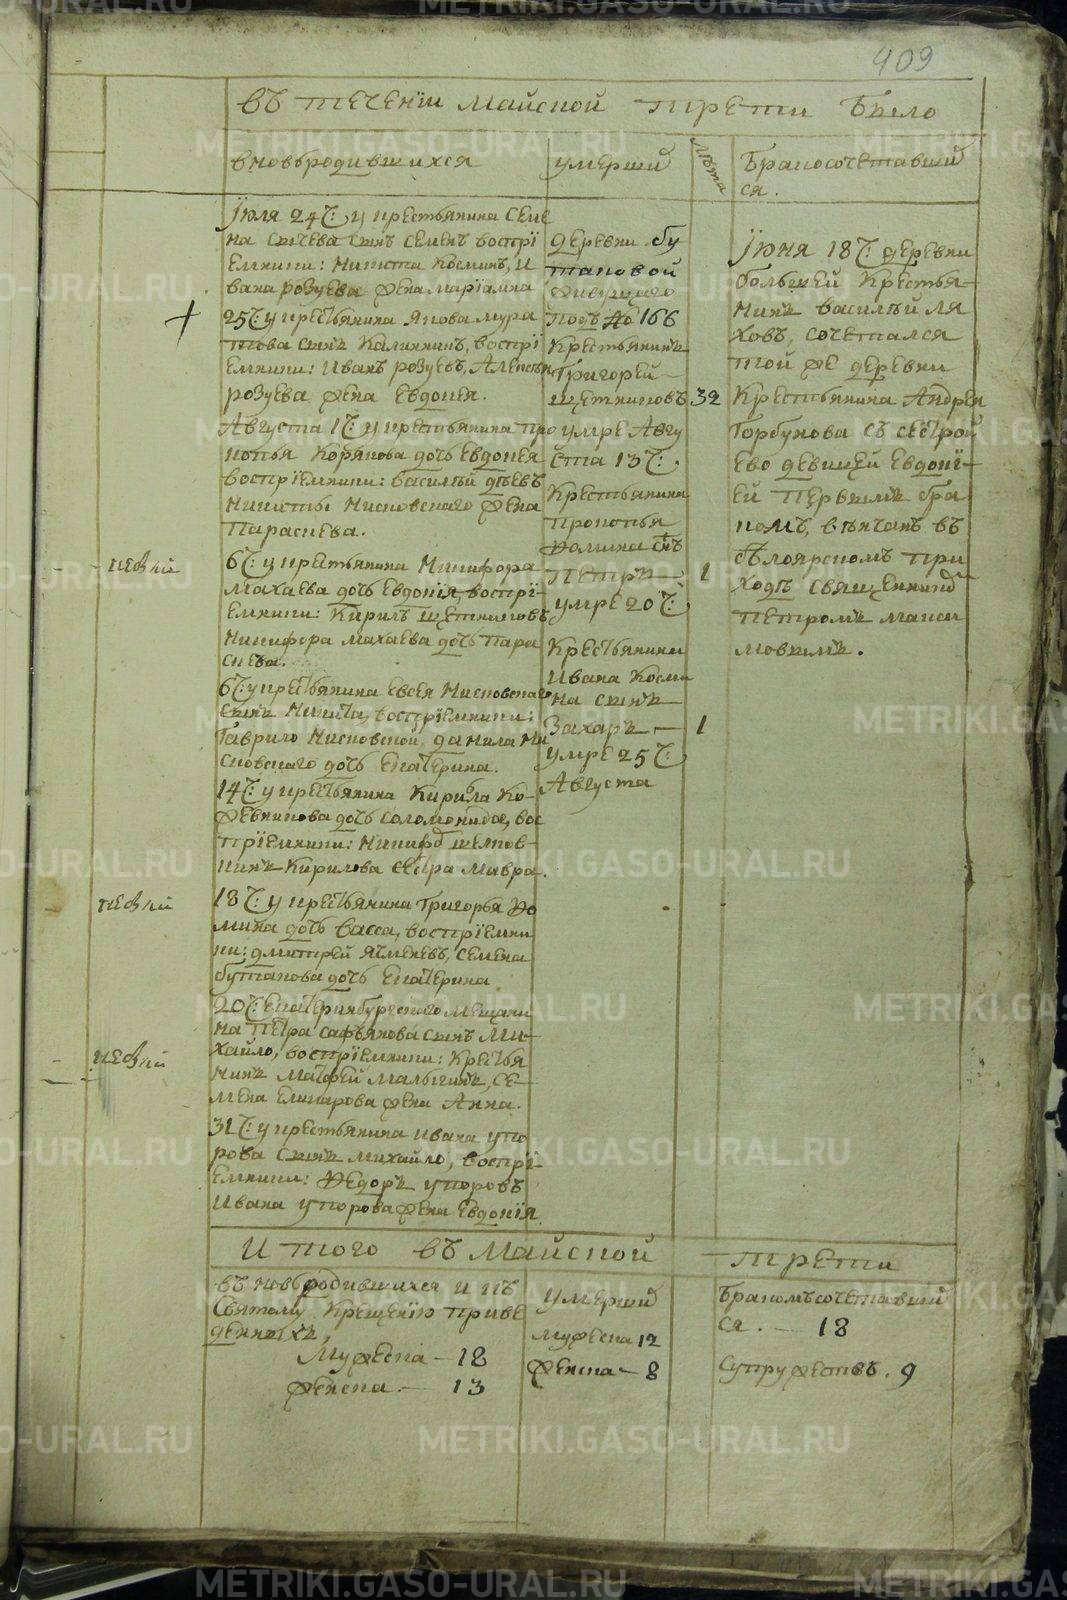 409
въ течениі майской трети было
вновьродившихся
умерший
лѣта
бракосочетавший
ся.
Іюля 24 Ч: у крестьянина Семе
на Сычева сынъ Семенъ воспрі
емники: Никита Косминъ, и
вана розуева жена Маріамна
25 Ч: у крестьянина Якова Мура
това сынъ Калинникъ, воспрі
емники: Иванъ розуевъ, Алексѣя
розуева жена Евдокея.
Августа 1 Ч: у крестьянина про
копья Корякова дочь Евдокея
воспріемники: василѣй дѣевъ
Никиты Кисловского жена
Параскева.
пезкій
6 Ч: у крестьянина Никифора
Махаева дочь Евдокія, воспрі-
емники: Кирилъ щетниковъ
Никифора махаева дочь пара
скева.
6 Ч: у крестьянина Евсея Кисловскаго
сынъ Никита, воспріемники:
Гаврило Кисловской, данила Ки
словскаго дочь Екатерина.
14 Ч: у крестьянина Кирила Ко-
жевникова дочь соломонида, вос
пріемники: Никифоръ шелков-
никъ Кирилова сестра Мавра.
18 Ч: у крестьянина Григорья До
мина дочь васса, воспріемни
ки: дмитрей Ячменевъ, Семена
бутакова дочь Екатерина
20 Ч: Екатеринбургского мещани
на Петра сафьянова сынъ Ми-
хайло, воспріемники: Крестья
нинъ Матфей Малыгинъ, Се-
мена Елизарова жена Анна.
31 Ч: у крестьянина ивана упо
рова сынъ михайло, воспрі-
емники: Федоръ упоровъ
Ивана упорова жена Евдокія
деревни бу
таковой
живущаго
подъ № 166
Крестьянинъ
Григорей
щетниковъ 32
умре Авгу
ста 13 Ч:
Крестьянина
прокопья
Домина сынъ
Петръ — 1
умре 20 Ч:
Крестьянина
Ивана Косми
на сынъ
Захаръ — 1
умре 25 Ч:
Августа
Іюня 18 Ч: деревни
большей Крестья-
нинъ василѣй ля
ховъ, сочетался
той же деревни
Крестьянина Андрея
Горбунова съ сестрой
ево девицей Евдокі-
ей первымъ бра
комъ, вѣнчанъ въ
бѣлоярскомъ при
ходѣ священникомъ
петромъ
.
И того въ Майской трети
въ новьродившихся и къ
Святому Крещению приве
денныхъ
Мужеска — 18
женска — 13
умерший
мужеска 12
женска — 8
бракомъсочетавший
ся. — 18
супружествъ. 9
METRIKI.GASO-URAL.RU